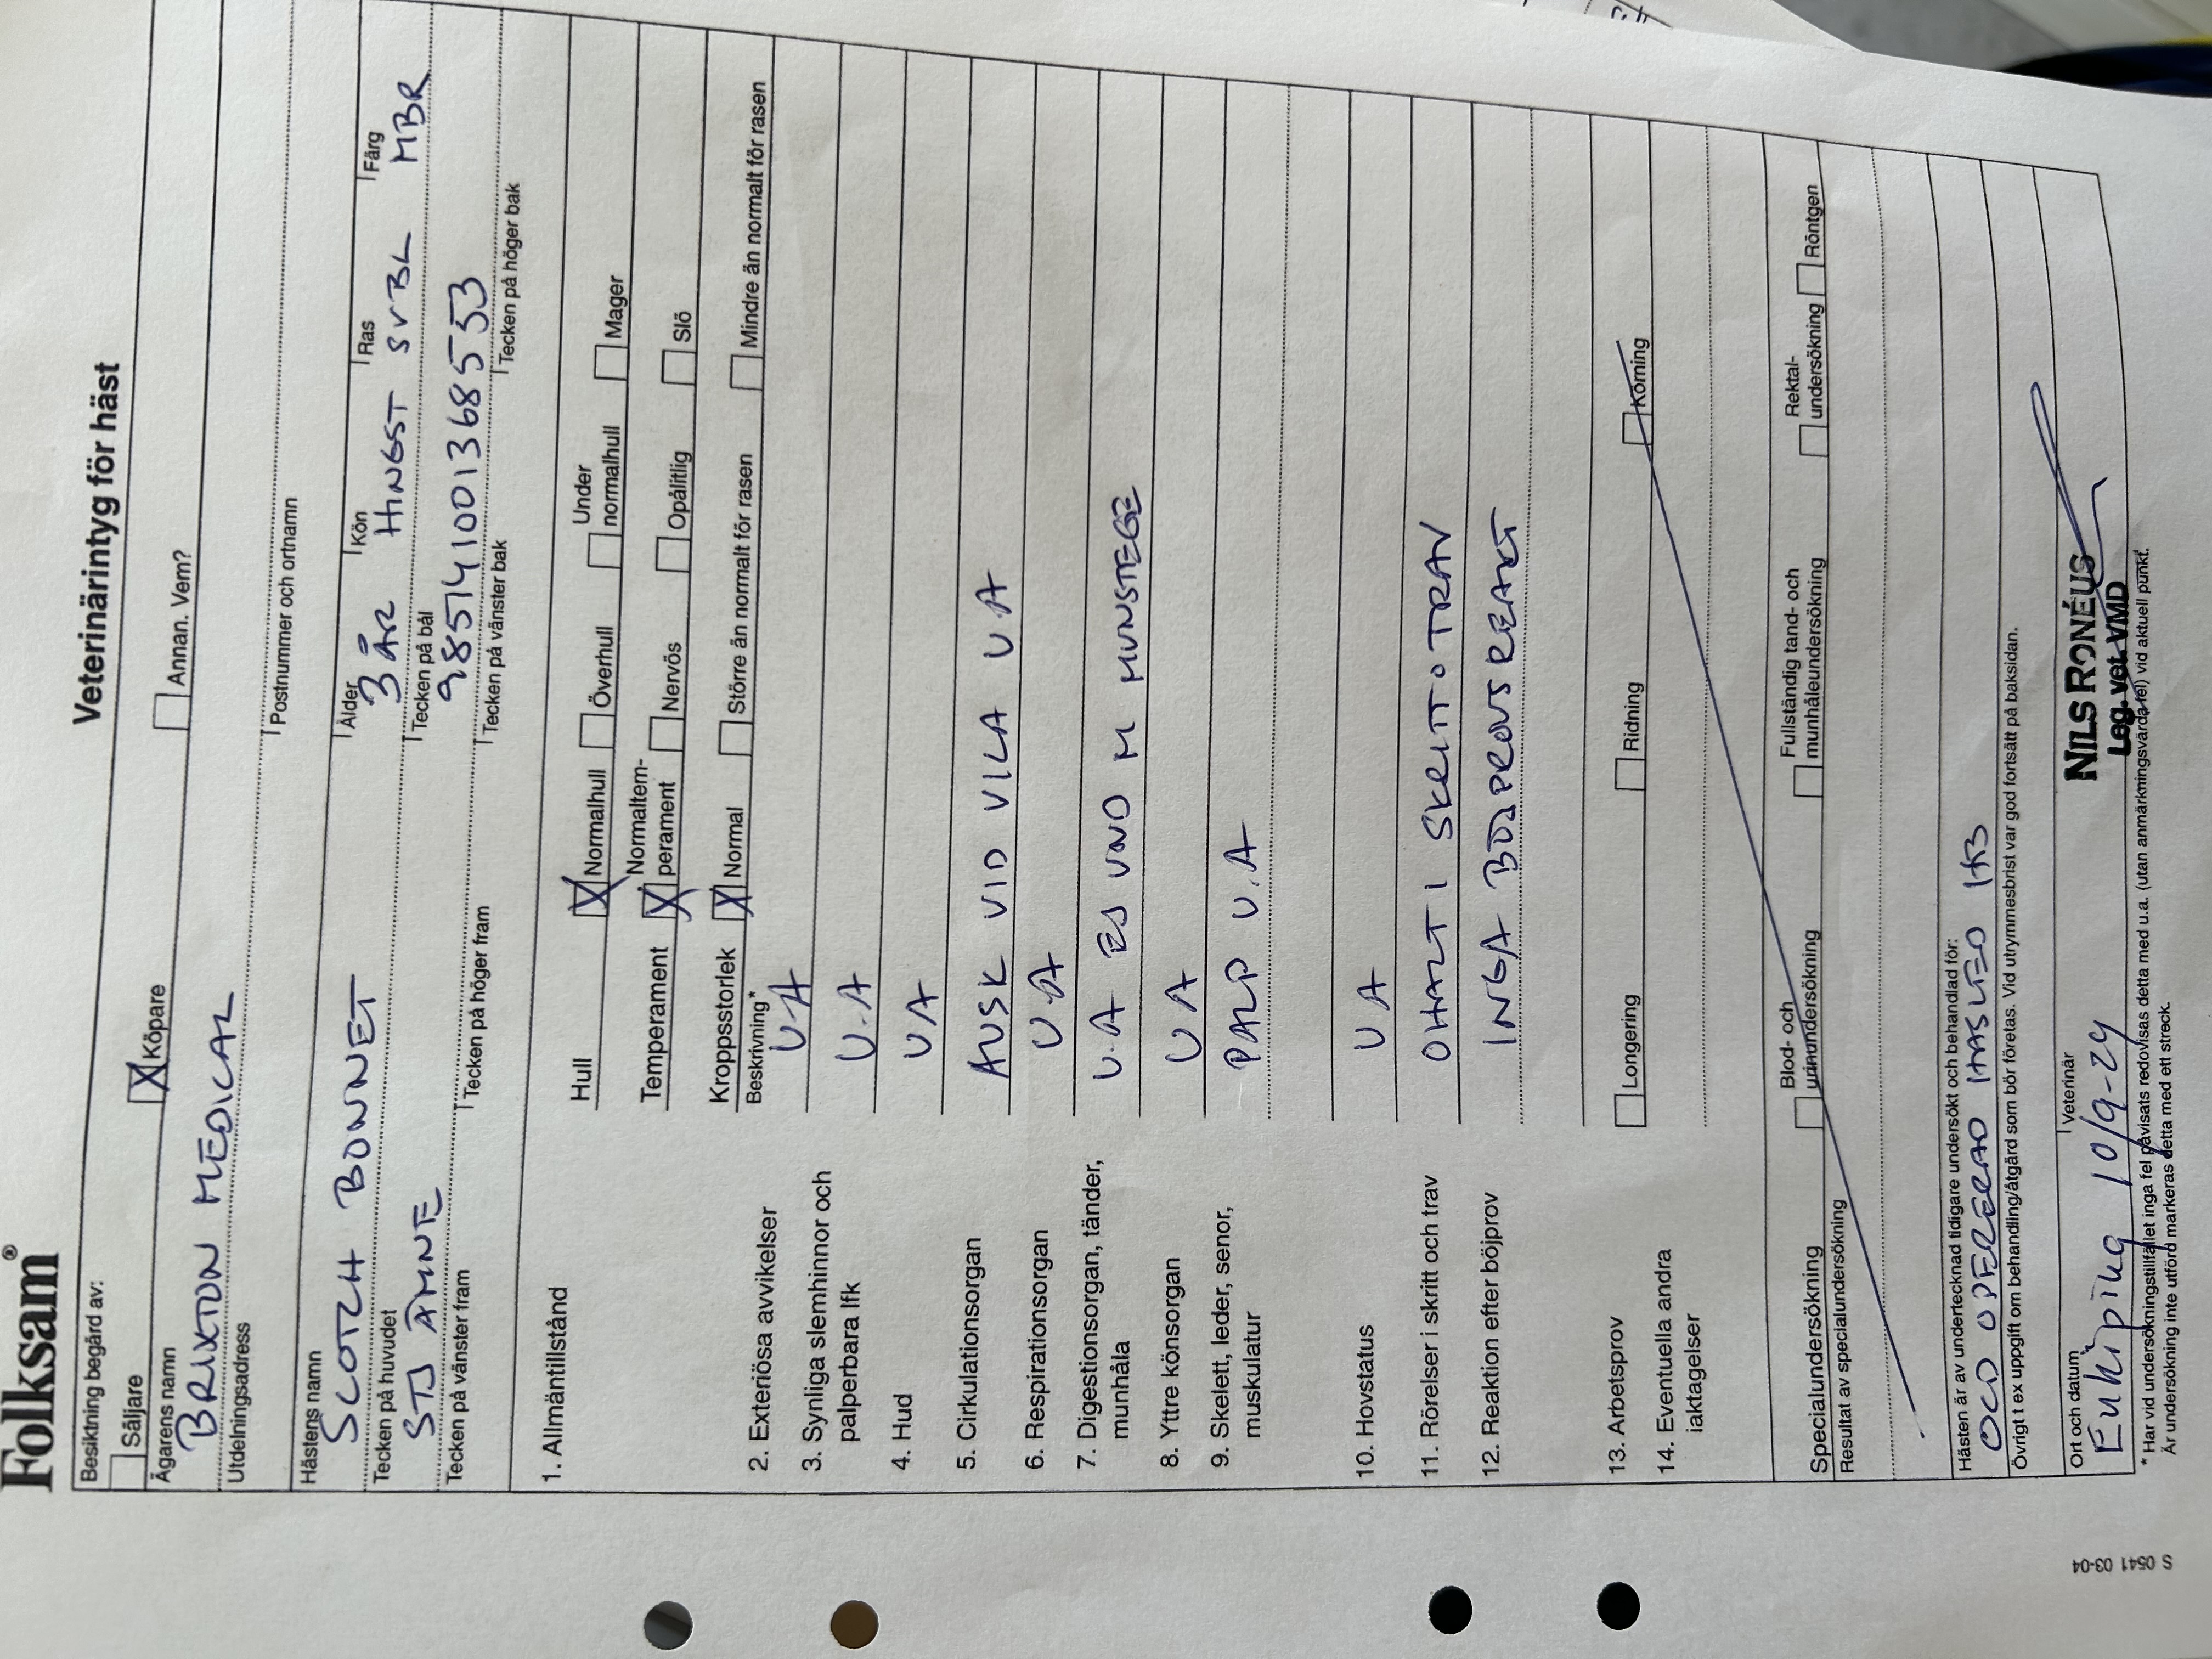 Folksam®
Veterinärintyg för häst
Besiktning begärd av:
Säljare X Köpare Annan. Vem?
Ägarens namn
BRIXTON MEDICAL
Utdelningsadress Postnummer och ortnamn
Hästens namn Ålder Kön Ras Färg
SCOTCH BONNET 3 ÅR HINGST SVBL MBR
Tecken på huvudet Tecken på bål
STJ ÄMNE 985741001368553
Tecken på vänster fram Tecken på höger fram Tecken på vänster bak Tecken på höger bak
1. Allmäntillstånd
Hull X Normalhull Överhull Under normalhull Mager
Temperament X Normaltemperament Nervös Opålitlig Slö
Kroppsstorlek X Normal Större än normalt för rasen Mindre än normalt för rasen
Beskrivning*
2. Exteriösa avvikelser U A
3. Synliga slemhinnor och palperbara lfk U.A
4. Hud U A
5. Cirkulationsorgan AUSK VID VILA U A
6. Respirationsorgan U.A
7. Digestionsorgan, tänder, munhåla U.A EJ UND M MUNSTEGE
8. Yttre könsorgan U A
9. Skelett, leder, senor, muskulatur PALP U.A
10. Hovstatus U A
11. Rörelser i skritt och trav OHALT I SKRITT O TRAV
12. Reaktion efter böjprov INGA BÖJPROVSREAKT
13. Arbetsprov Longering Ridning Körning
14. Eventuella andra iakttagelser
Specialundersökning Blod- och urinundersökning Fullständig tand- och munhåleundersökning Rektal-undersökning Röntgen
Resultat av specialundersökning
Hästen är av undertecknad tidigare undersökt och behandlad för:
OCD OPERERAD HASLED HB
Övrigt t ex uppgift om behandling/åtgärd som bör företas. Vid utrymmesbrist var god fortsätt på baksidan.
Ort och datum Veterinär
Enköping 10/9-24
NILS RONÉUS
Leg. vet. VMD
* Har vid undersökningstillfället inga fel påvisats redovisas detta med u.a. (utan anmärkningsvärda fel) vid aktuell punkt.
Är undersökning inte utförd markeras detta med ett streck.
S 0541 03-04